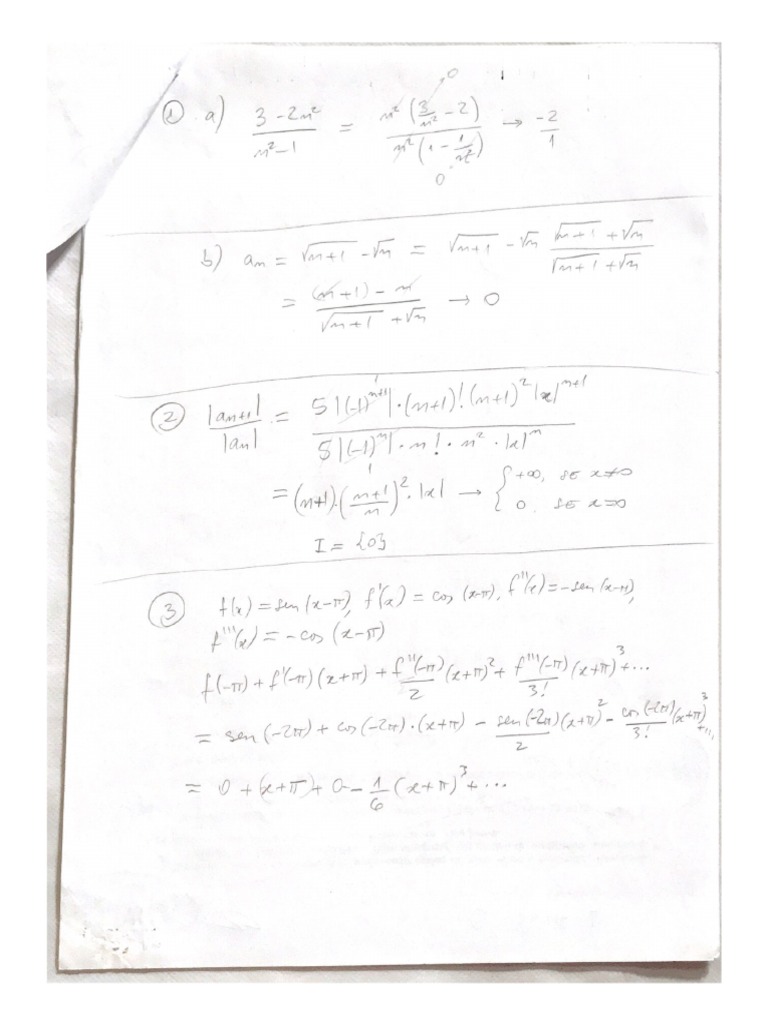 ① a) (3 - 2n²)/(n² - 1) = n²(3/n² - 2)/n²(1 - 1/n²) → -2/1
0
0
b) aₙ = √(n+1) - √n = √(n+1) - √n (√(n+1) + √n)/(√(n+1) + √n)
= ((n+1) - n)/(√(n+1) + √n) → 0
② |aₙ₊₁|/|aₙ| = 5|(-1)ⁿ⁺¹|·(n+1)!(n+1)²|x|ⁿ⁺¹ / 5|(-1)ⁿ|·n!·n²·|x|ⁿ
= (n+1)·((n+1)/n)²·|x| → { +∞, SE x≠0
0, SE x=0
I = {0}
③ f(x) = sen(x-π), f'(x) = cos(x-π), f''(x) = -sen(x-π),
f'''(x) = -cos(x-π)
f(-π) + f'(-π)(x+π) + f''(-π)/2 (x+π)² + f'''(-π)/3! (x+π)³ + ...
= sen(-2π) + cos(-2π)·(x+π) - sen(-2π)/2 (x+π)² - cos(-2π)/3! (x+π)³ + ...
= 0 + (x+π) + 0 - 1/6 (x+π)³ + ...